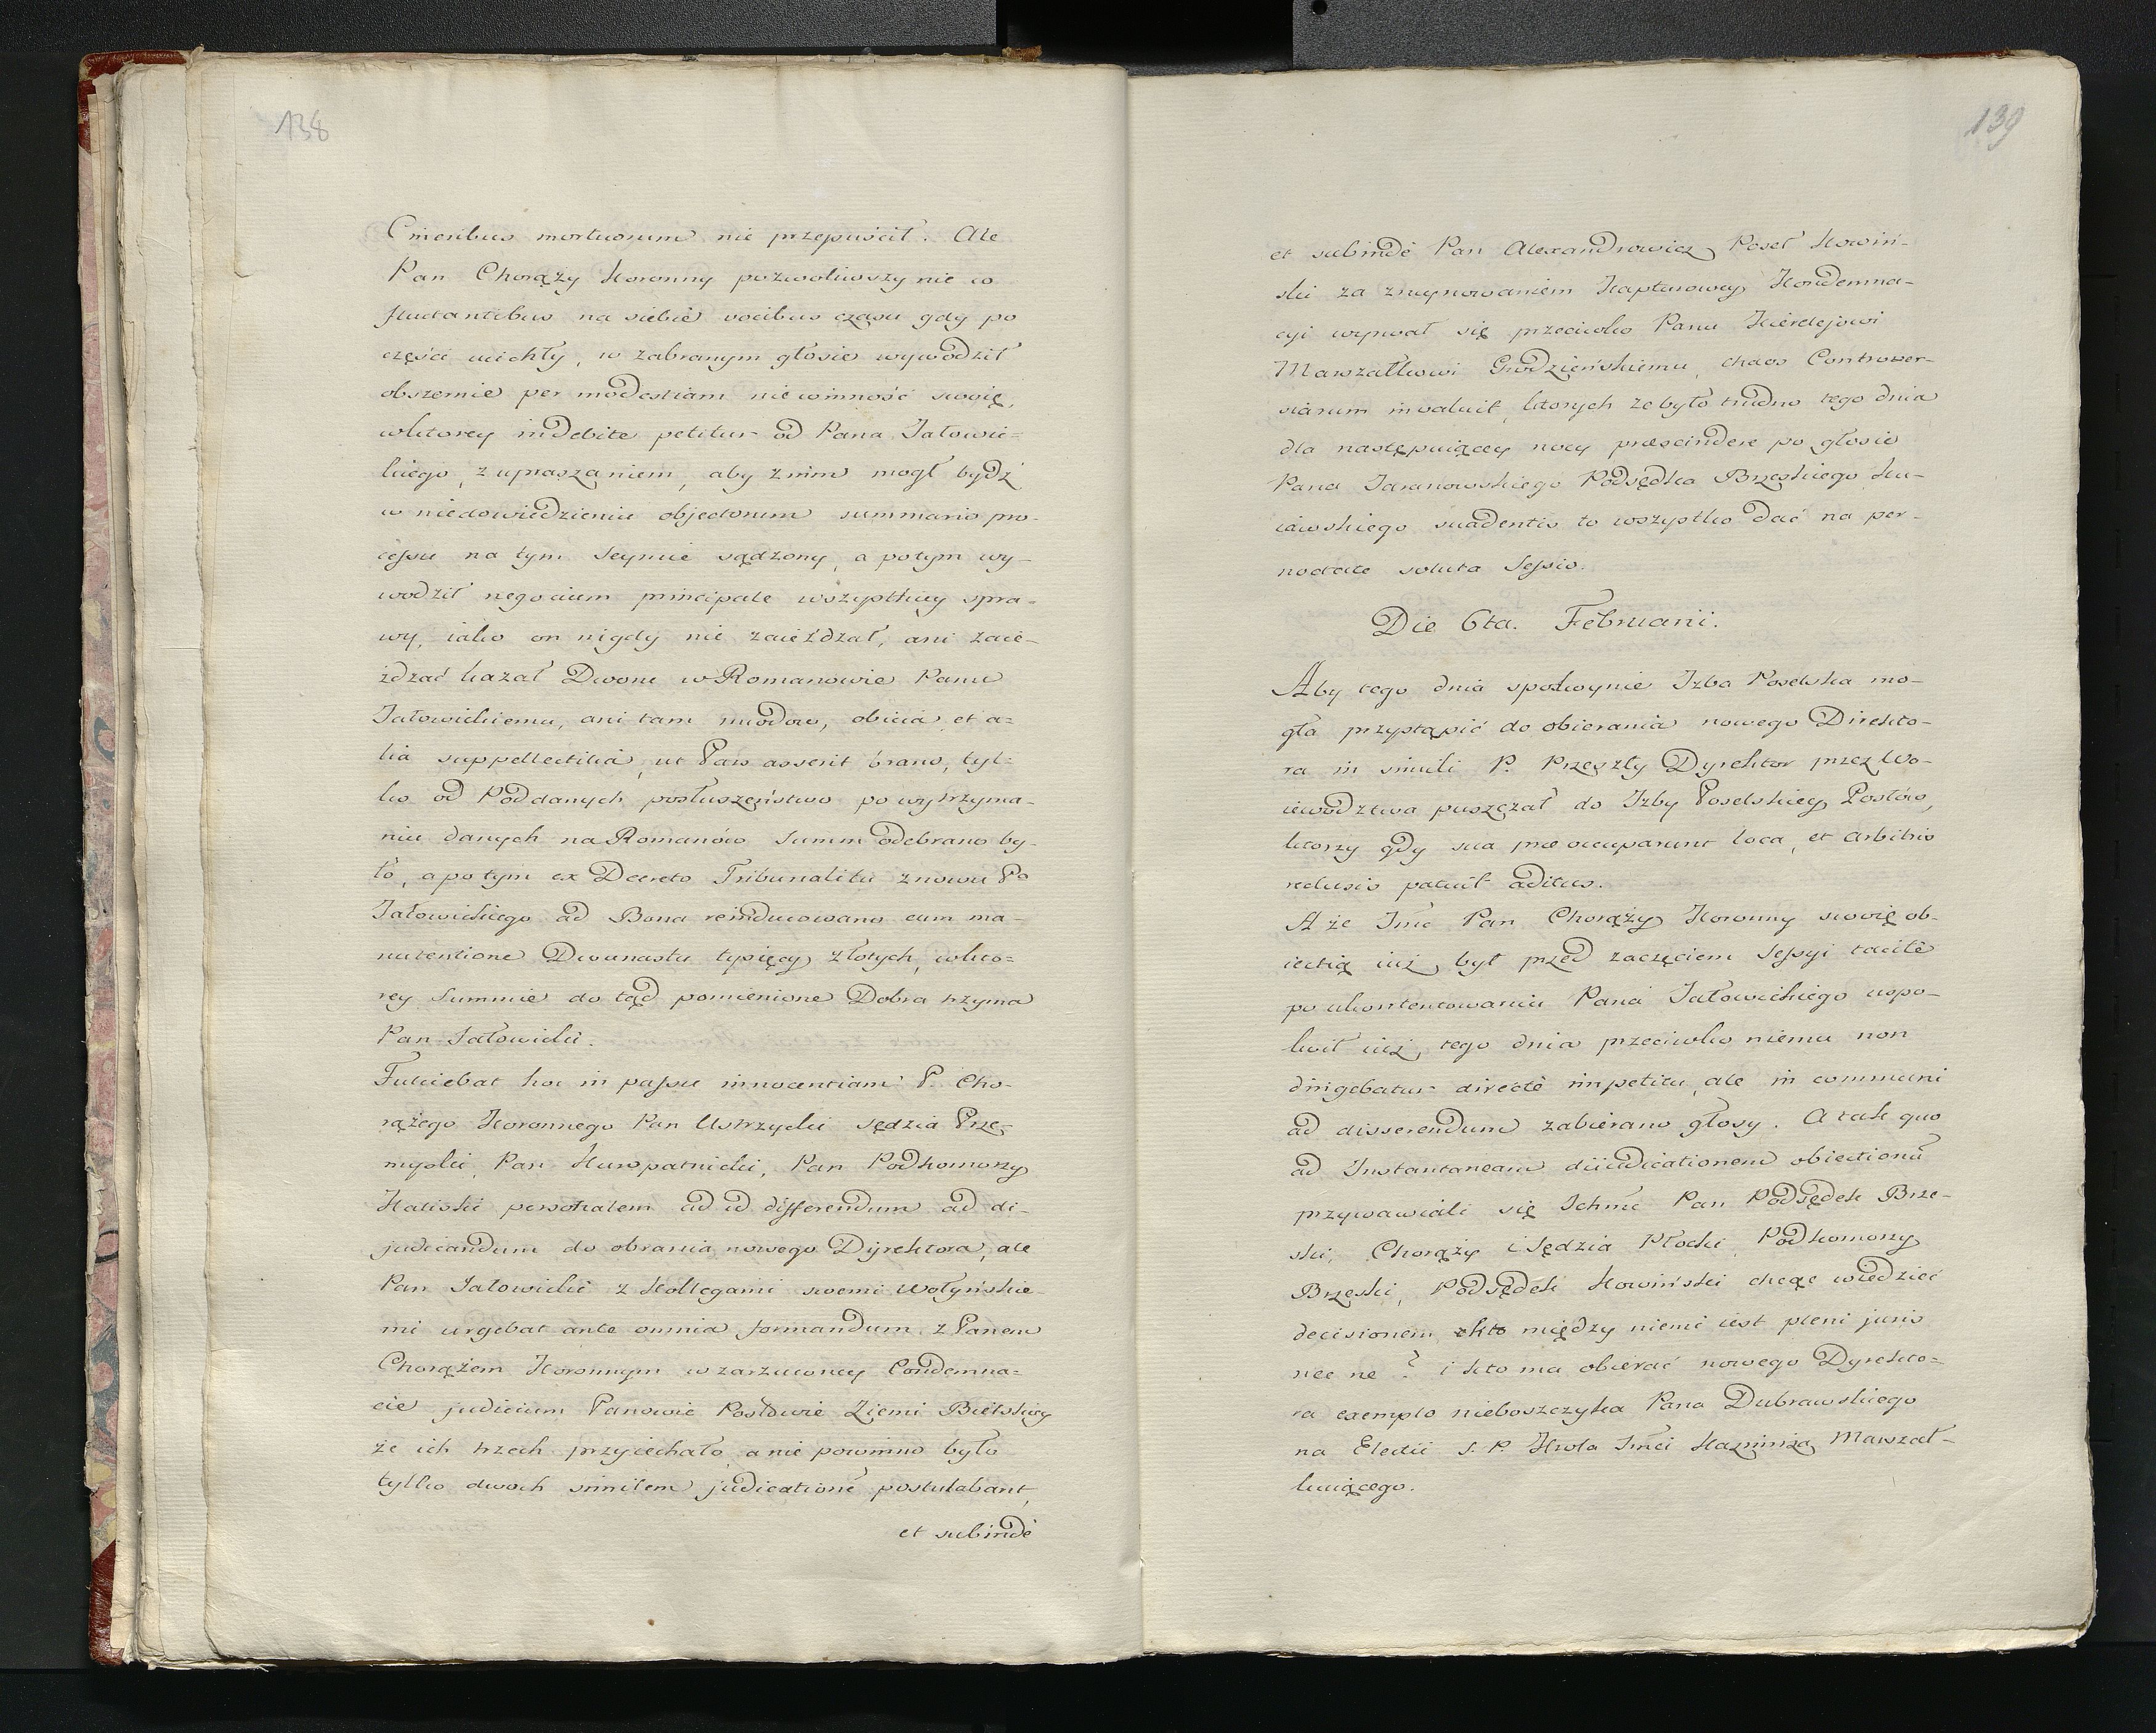 138
Cineribus mortuorum nie przepuścił. Ale
Pan Chorąży Koronny pozwoliwszy nieco
fluctantibus na siebie vocibus czasu gdy po
części ucichły, w zabranym głosie wywodził
obszernie per modestiam niewinność swoię,
wktorey indebite petitur od Pana Jałowic=
kiego, z upraszaniem, aby znim mogł bydź
w niedowiedzieniu objectorum summario pro-
cessu na tym Seymie sądzony, a potym wy-
wodził negocium principale wszystkiey spra-
wy, iako on nigdy nie zaieżdzał, ani zaie-
żdzać kazał Dworu w Romanowie Panu
Jałowickiemu, ani tam miodow, obicia et a=
lia suppellectilia, ut Pars asserit brano, tyl=
ko od Poddanych posłuszeństwo po wytrzyma-
niu danych na Romanów Summ odebrano by-
ło, a potym ex Decreto Tribunalitu znowu Pa
Jałowickiego ad Bona reinducowano cum ma-
nutentione Dwunastu tysięcy złotych, wkto=
rey Summie do tąd pomienione Dobra trzyma
Pan Jałowicki.
Fulciebat hoc in passu innocentiam P. Cho-
rążego Koronnego Pan Ustrzycki Sędzia Prze-
myslki, Pan Karpatnicki, Pan Podkomorzy
Halicki ad id differendum ad di-
judicandum do obrania nowego Dyrektora, ale
Pan Jałowicki z Kollegami swemi Wołyńskie-
mi urgebat ante omnia formandum z Panem
Chorążem Koronnym w zarzuconey Condemna=
cie judicium Panowie Posłowie Ziemi Bielskiey
że ich trzech przyiechało a nie powinno było
tylko dwoch similem judicationē postulabant,
et subindè
139
et subindè Pan Alexandrowicz Poseł Kowiń-
ski za zruynowaniem Kapturowey Kondemna-
cyi uzywał się przeciwko Panu Kierdejowi
Marszałkowi Grodzieńskiemu, chaos Controver-
siarum invaluit, ktorych że było trudno tego dnia
dla następuiącey nocy præscindere po głosie
Pana Jaranowskiego Podsędka Brzeskiego Ku-
iawskiego suadentis to wszystko dać na per-
noctate soluta Sessio.
Die 6ta. Februarii.
Aby tego dnia spokoynie Izba Poselska mo-
gła przystąpić do obierania nowego Direkto-
ra in simili P. Przeszły Dyrektor przez Wo-
iewodztwa puszczał do Izby Poselskiey Posłów,
ktorzy gdy sua præoccuparunt loca, et Arbitris
reclusis patuit aditus.
A że Jmć Pan Chorąży Koronny swoię ob-
iectią iuż był przed zaczęciem Sessyi tacitè
po ukontentowaniu Pana Jałowickiego uspo-
koił iuż tego dnia przeciwko niemu non
dirigebatur directè impetitu, ale in communi
ad disserendum zabierano głosy. A tak quo
ad Instantaneam diiudicationem obiectionū
przywawiali się Ichmć Pan Podsędek Brze-
ski, Chorąży i Sędzia Płocki, Podkomorzy
Brzeski, Podsędek Kowiński chcąc wiedzieć
decisionem, kto między niemi iest pleni juris
nec ne? i kto ma obierać nowego Dyrekto=
ra exemplo nieboszczyka Pana Dubrawskiego
na Elekcii S. P. Krola Jmci Kazimirza Marszał-
kuiącego.